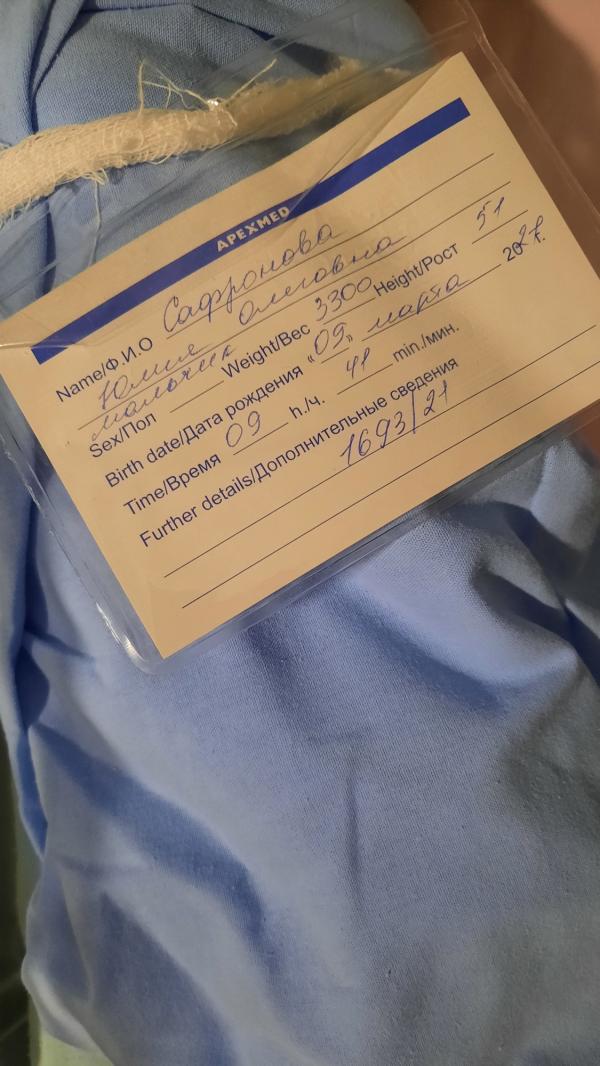 APEXMED
Name/Ф.И.О Сафронова
Юлия Олеговна
мальчик
Sex/Пол Weight/Вес 3300 Height/Рост 51
Birth date/Дата рождения "09" марта 2021г.
Time/Время 09 h./ч. 41 min./мин.
Further details/Дополнительные сведения
1693/21